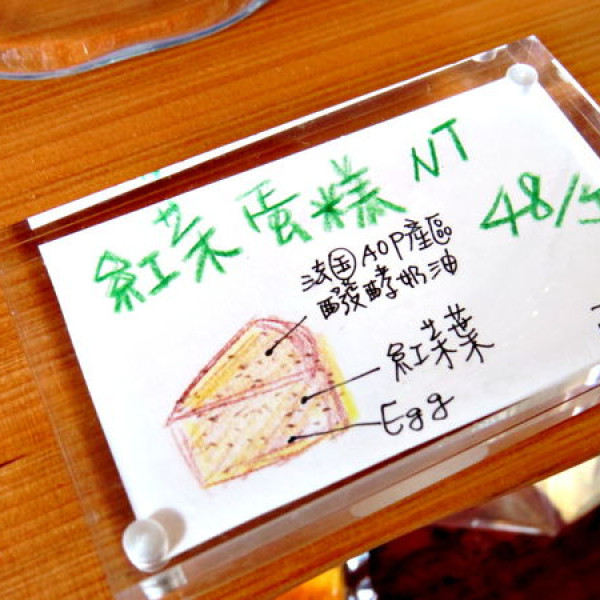 紅茶蛋糕 NT 48/
法国AOP產區
醱酵奶油
紅茶葉
Egg